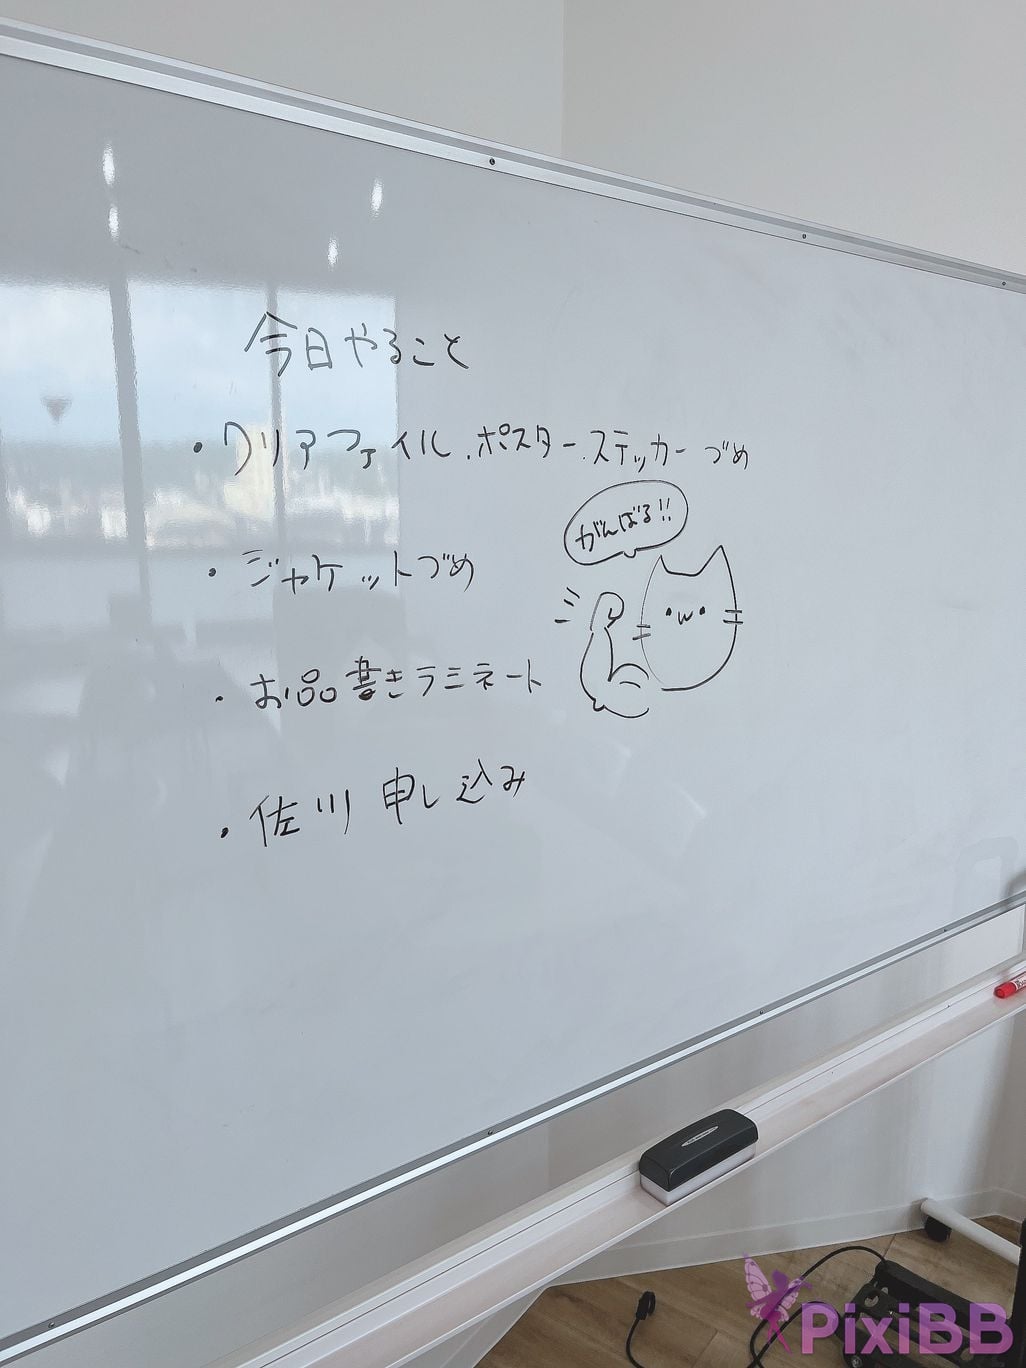 今日やること
・クリアファイル、ポスター、ステッカーづめ
・ジャケットづめ
がんばる!!
・お品書きラミネート
・佐川 申し込み
PixiBB